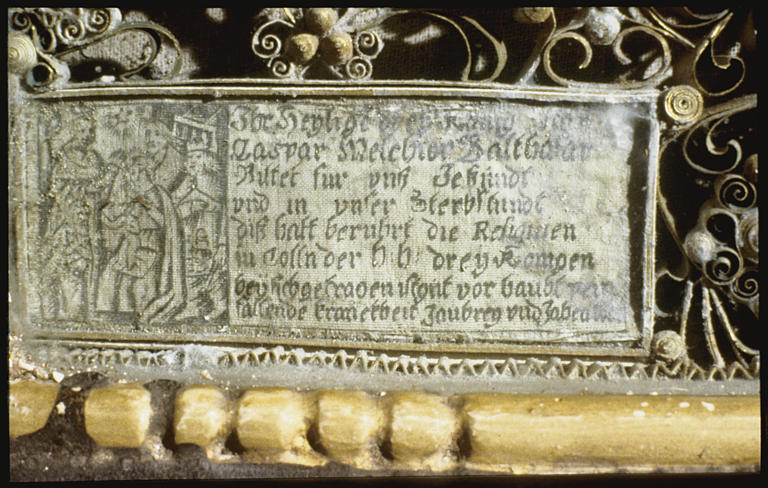 Ihr Heylige drey König
Caspar Melchior Balthasar
Bittet für vnß Jetzundt
vnd in vnser Sterbstundt
diß hatt berührt die Reliquien
in Cölln der H: H: drey Königen
bey sich getragen ist gut vor haubt
fallende kranckheit Zaubrey vnd